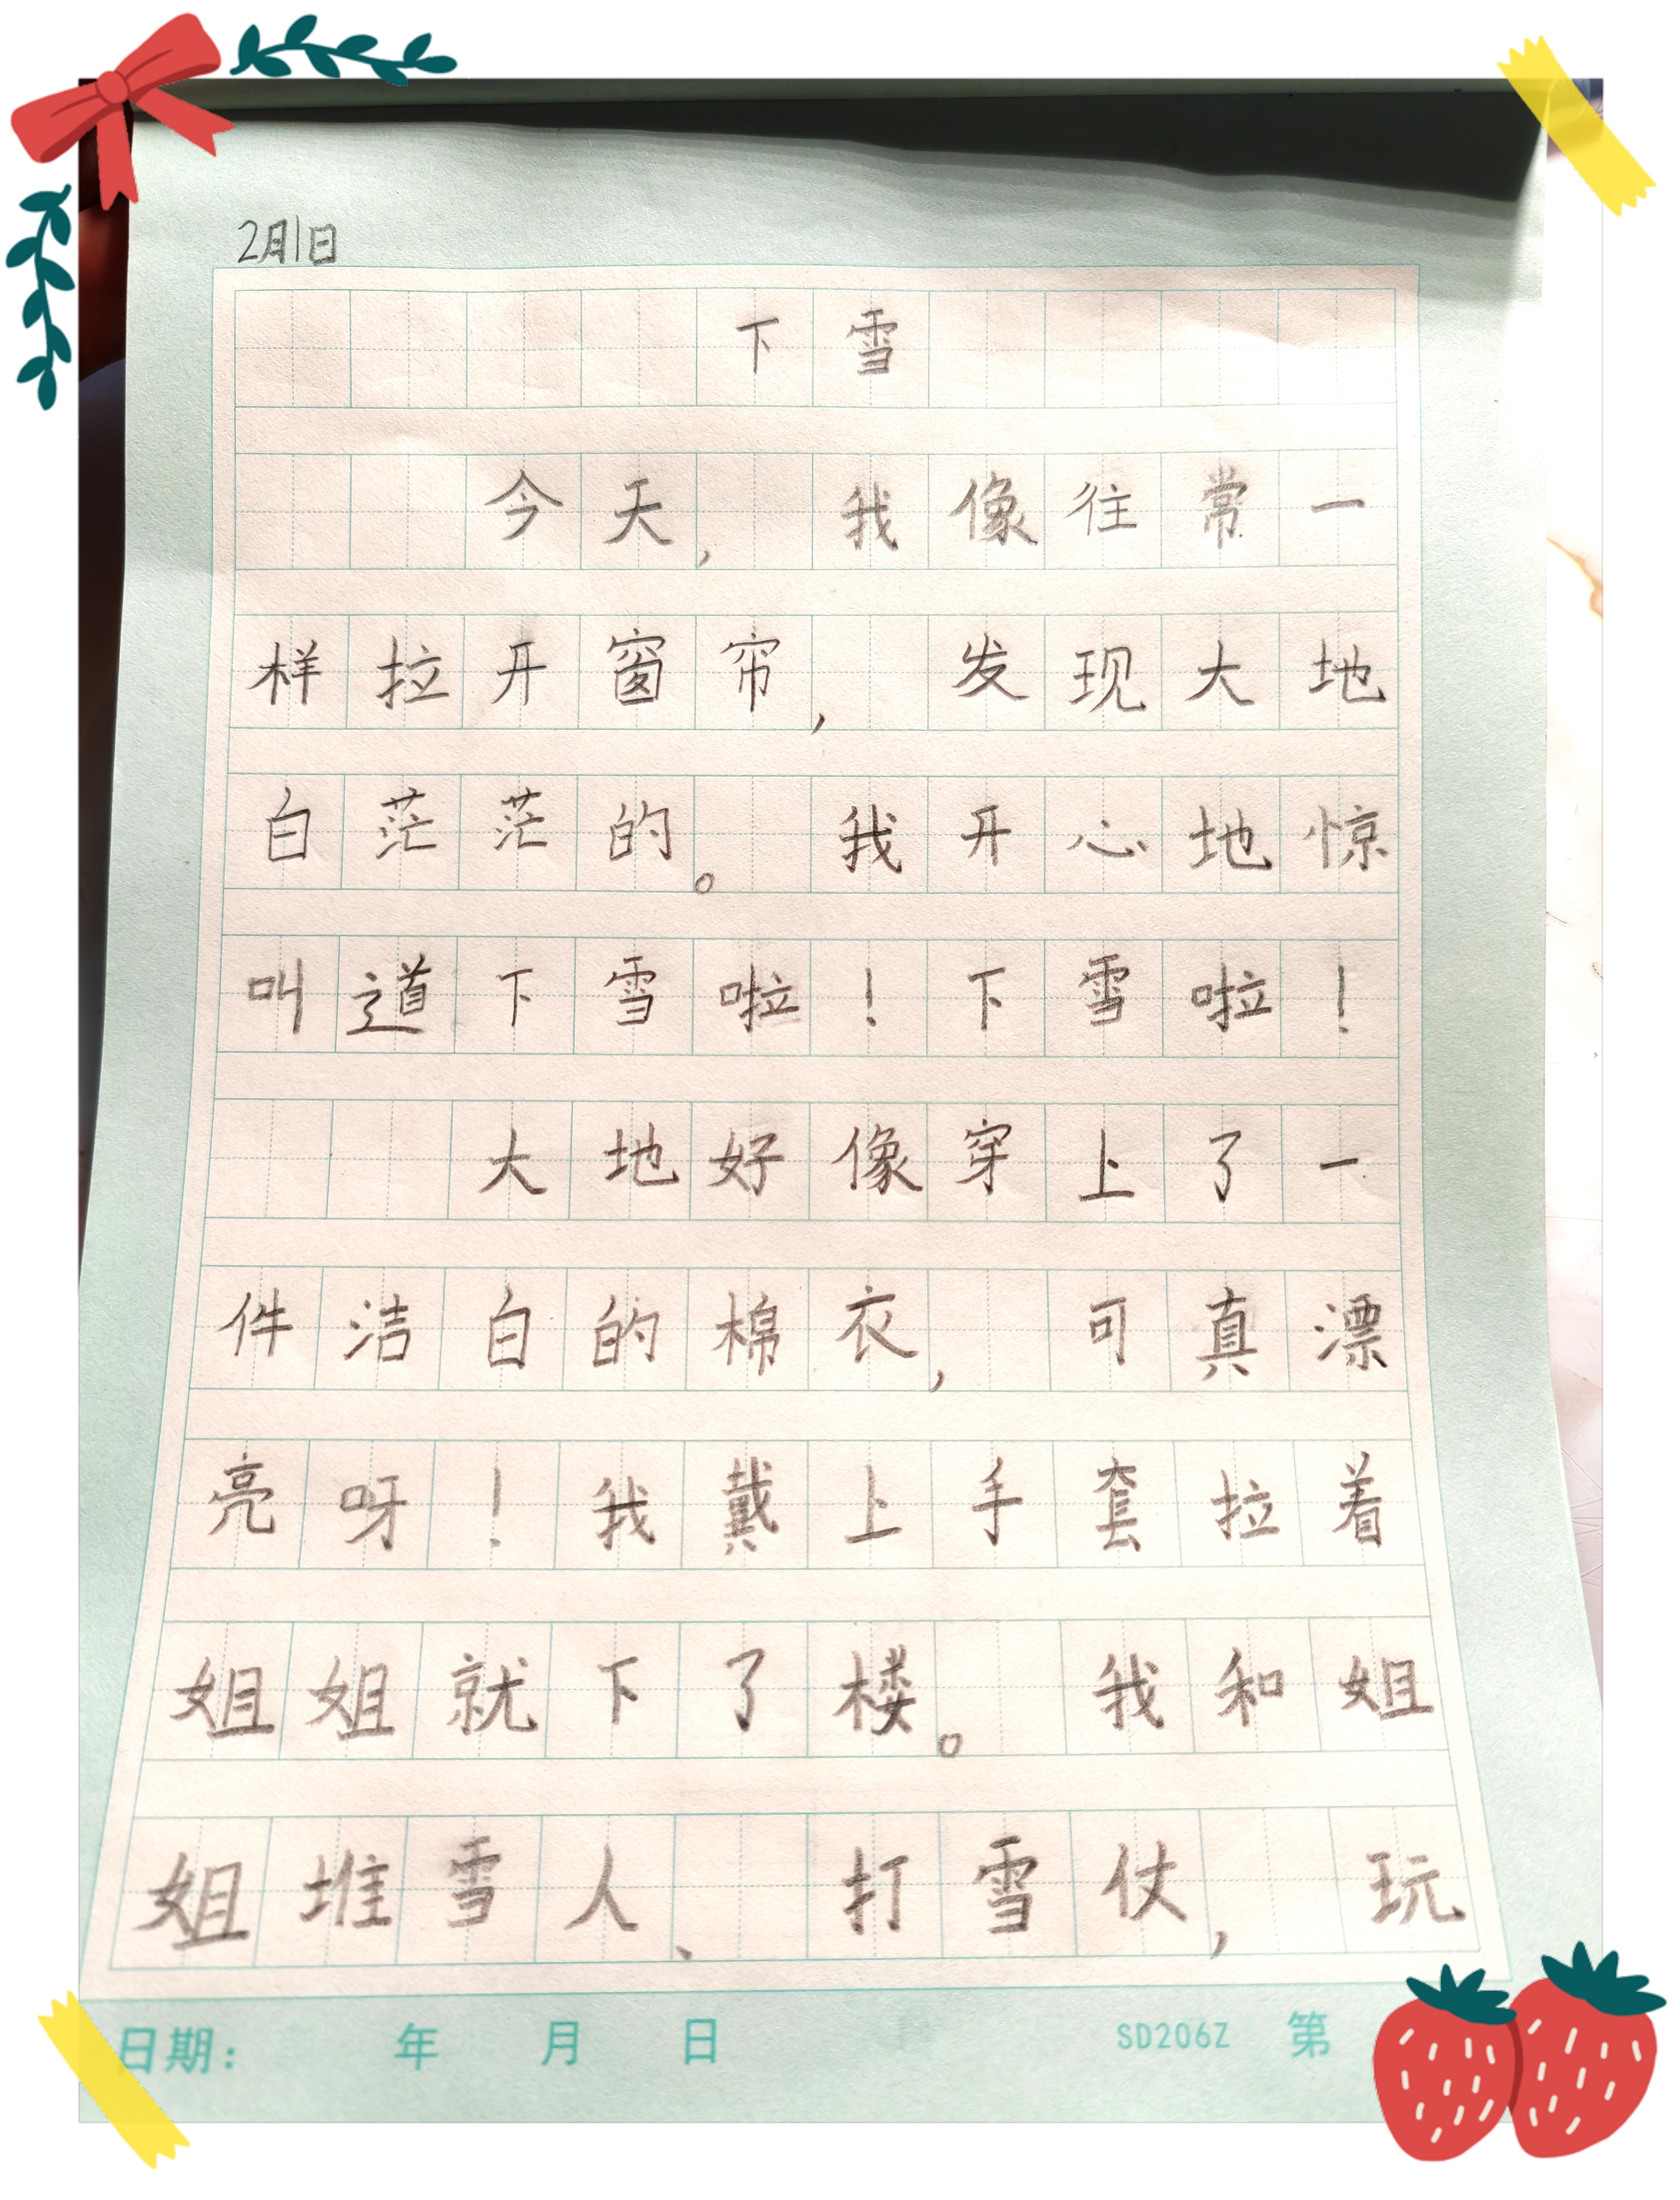 2月1日
下雪
今天，我像往常一
样拉开窗帘，发现大地
白茫茫的。我开心地惊
叫道下雪啦！下雪啦！
大地好像穿上了一
件洁白的棉衣，可真漂
亮呀！我戴上手套拉着
姐姐就下了楼。我和姐
姐堆雪人、打雪仗，玩
日期： 年 月 日 SD206Z 第